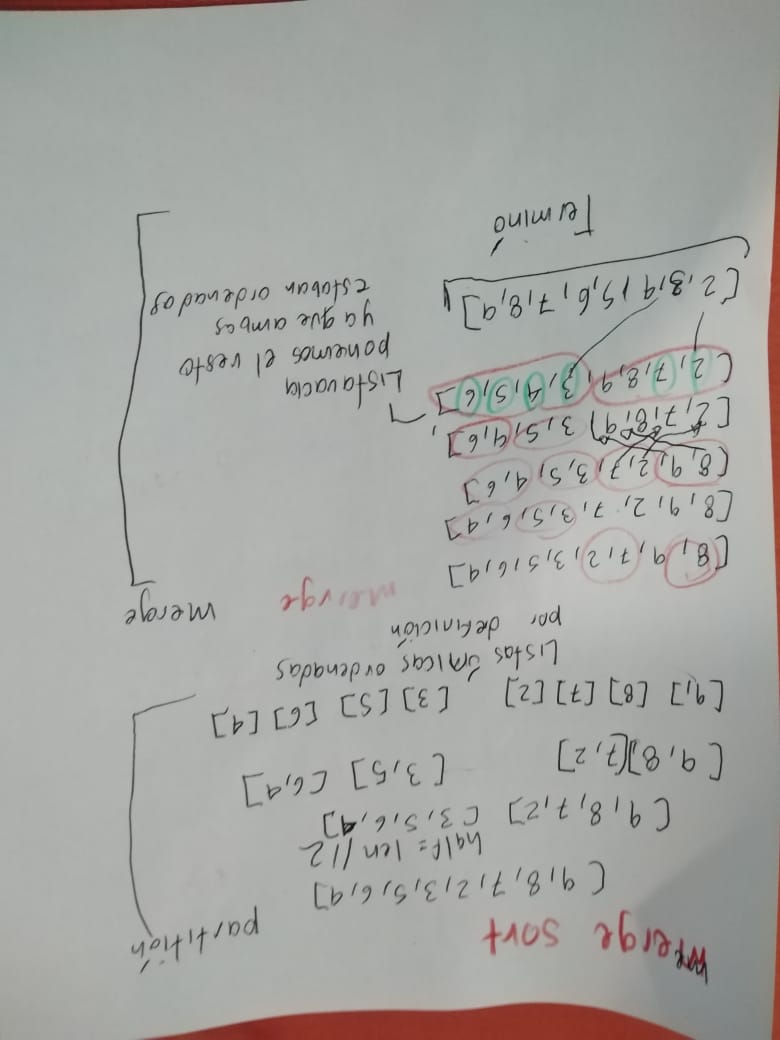 merge sort
partition
[9,8,7,2,3,5,6,4]
half = len//2
[9,8,7,2] [3,5,6,4]
[9,8][7,2] [3,5] [6,4]
[9] [8] [7] [2] [3] [5] [6] [4]
Listas únicas ordenadas
por definición
merge
merge
[8,9,7,2,3,5,6,4]
[8,9,2,7,3,5,6,4]
[8,9,2,7,3,5,4,6]
[2,7,8,9,3,5,4,6]
[2,7,8,9,3,4,5,6]
Lista vacia
ponemos el resto
ya que ambas
estaban ordenadas
[2,3,4,5,6,7,8,9]
Terminó